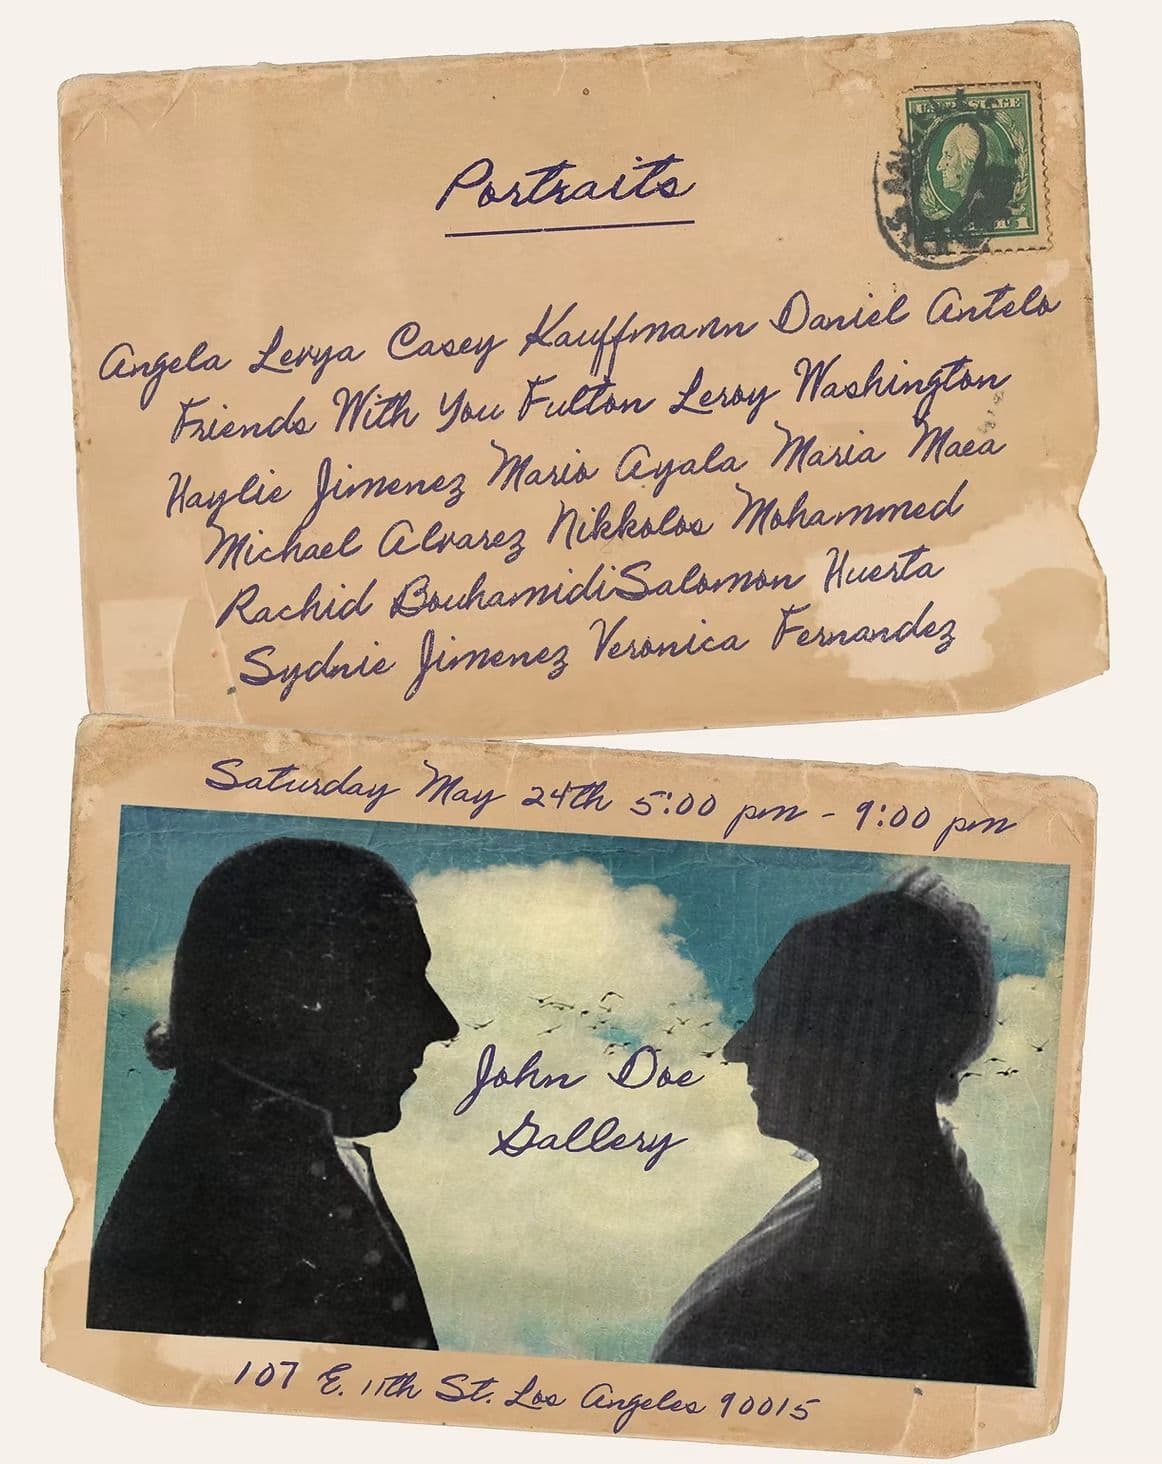 Portraits
Angela Levya Casey Kauffmann Daniel Antelo
Friends With You Fulton Leroy Washington
Haylie Jimenez Mario Ayala Maria Maea
Michael Alvarez Nikkolos Mohammed
Rachid Bouhamidi Salomon Huerta
Sydnie Jimenez Veronica Fernandez
Saturday May 24th 5:00 pm - 9:00 pm
John Doe
Gallery
107 E. 11th St. Los Angeles 90015